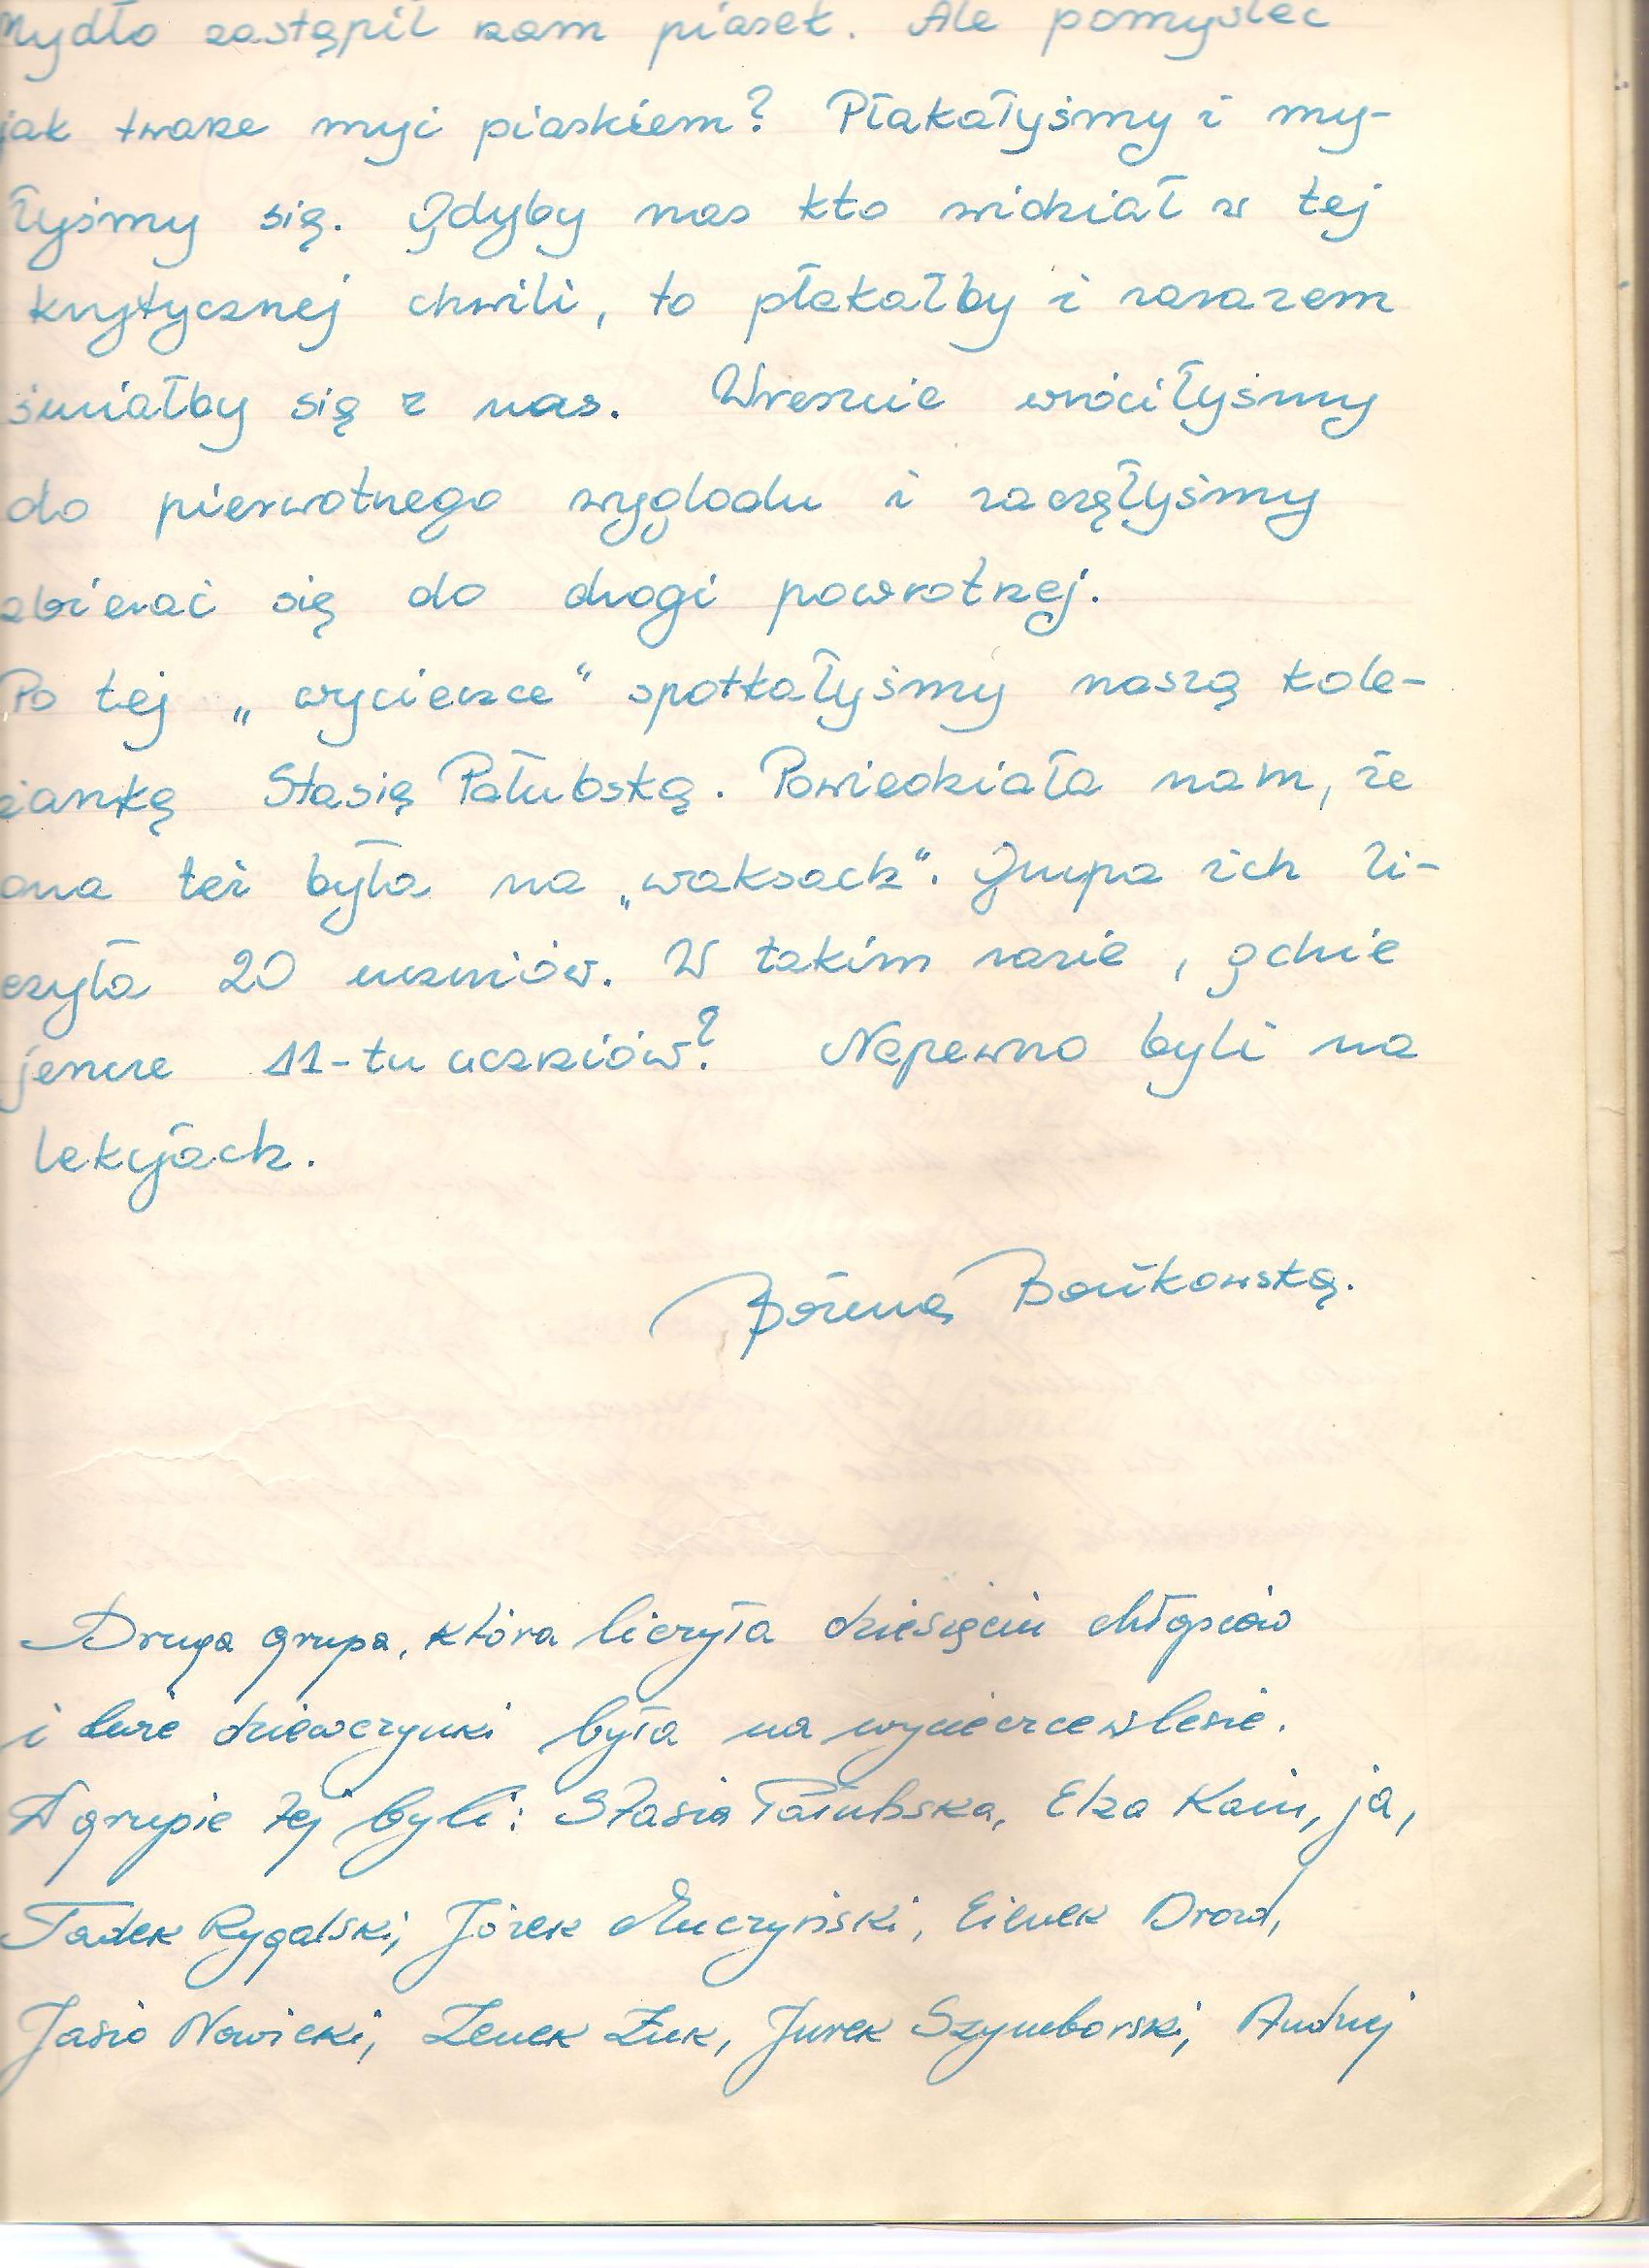 Mydło zastąpił nam piasek. Ale pomyśleć
jak twarze myć piaskiem? Płakałyśmy i my-
łyśmy się. Gdyby nas kto widział w tej
krytycznej chwili, to płakałby i zarazem
śmiałby się z nas. Wreszcie wróciłyśmy
do pierwotnego wyglądu i zaczęłyśmy
zbierać się do drogi powrotnej.
Po tej „wycieczce“ spotkałyśmy naszą kole-
żankę Stasię Pałubską. Powiedziała nam, że
ona też była na „waksach“. Grupa ich li-
czyła 20 uczniów. W takim razie, gdzie
jeszcze 11-tu uczniów? Napewno byli na
lekcjach.
Bożena Bańkowska.
Druga grupa, która liczyła dziesięciu chłopców
i dwie dziewczynki była na wycieczce w lesie.
W grupie tej byli: Stasia Pałubska, Elza Kain, ja,
Tadek Rygalski, Józek Muczyński, Gienek Drozd,
Jasio Nowicki, Zenek Żuk, Jurek Szymborski, Andrzej